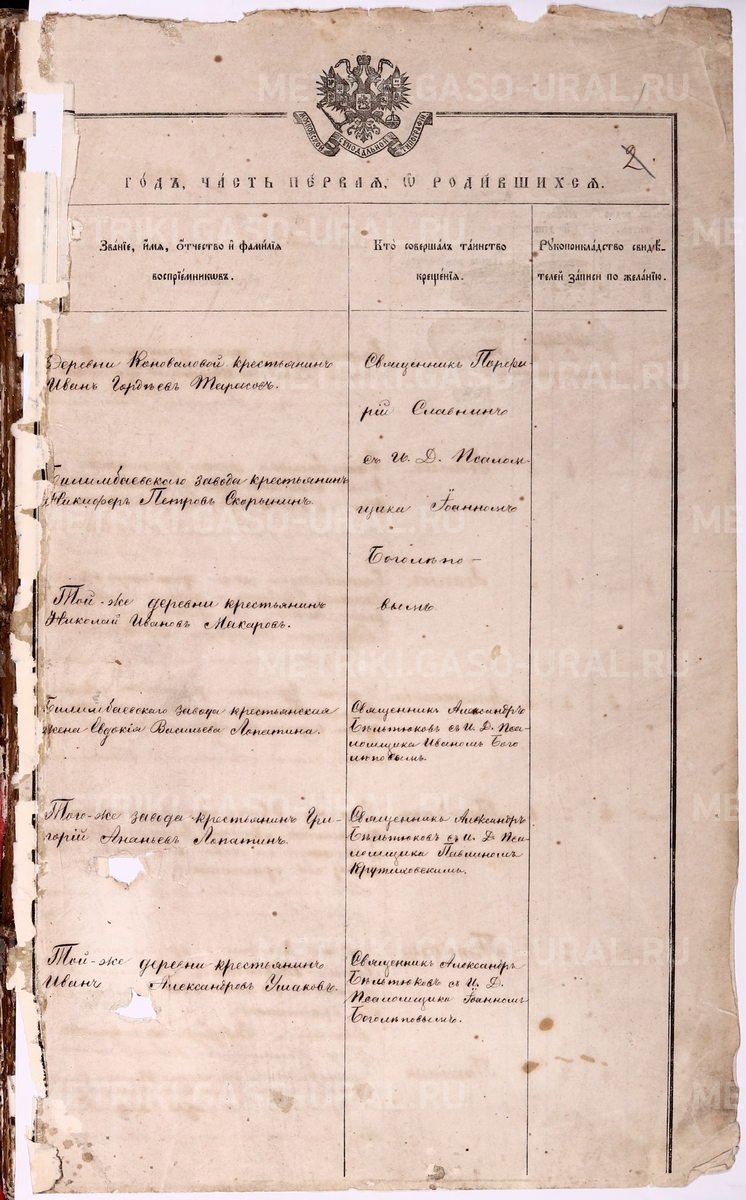 METRIKI.GASO-URAL.RU
МОСКОВСКОЙ СѴНОДАЛЬНОЙ ТИПОГРАФІИ
2.
ГО́ДЪ, ЧА́СТЬ ПЕ́РВАЯ, Ѡ РОДИ́ВШИХСЯ.
Зва́нїе, и҆́мя, ѻ҆́тчество и҆ фами́лїя
воспрїе́мникѡвъ.
Кто̀ соверша́лъ та́инство
креще́нїя.
Рꙋкоприкла́дство свидѣ́-
телей за́писи по жела́нїю.
Деревни Коноваловой крестьянинъ
Иванъ Гордѣевъ Тарасовъ.
Священникъ Порфи-
рій Славнинъ
съ И. Д. Псалом-
щика Іоанномъ
Боголѣпо-
вымъ
Билимбаевскаго завода крестьянинъ
Никифоръ Петровъ Скорынинъ.
Той-же деревни крестьянинъ
Николай Ивановъ Макаровъ.
Билимбаевскаго завода крестьянская
жена Евдокія Васильева Лопатина.
Священникъ Александръ
Бѣльтюковъ съ И. Д. Пса-
ломщика Иваномъ Бого
лѣповымъ.
Того-же завода крестьянинъ Гри-
горій Ананьевъ Лопатинъ.
Священникъ Александръ
Бѣльтюковъ съ И. Д Пса-
ломщика Павлиномъ
Крутиховскимъ.
Той-же деревни крестьянинъ
Иванъ Александровъ Ушаковъ.
Священникъ Александръ
Бѣльтюковъ съ И. Д.
Псаломщика Іоанномъ
Боголѣповымъ.